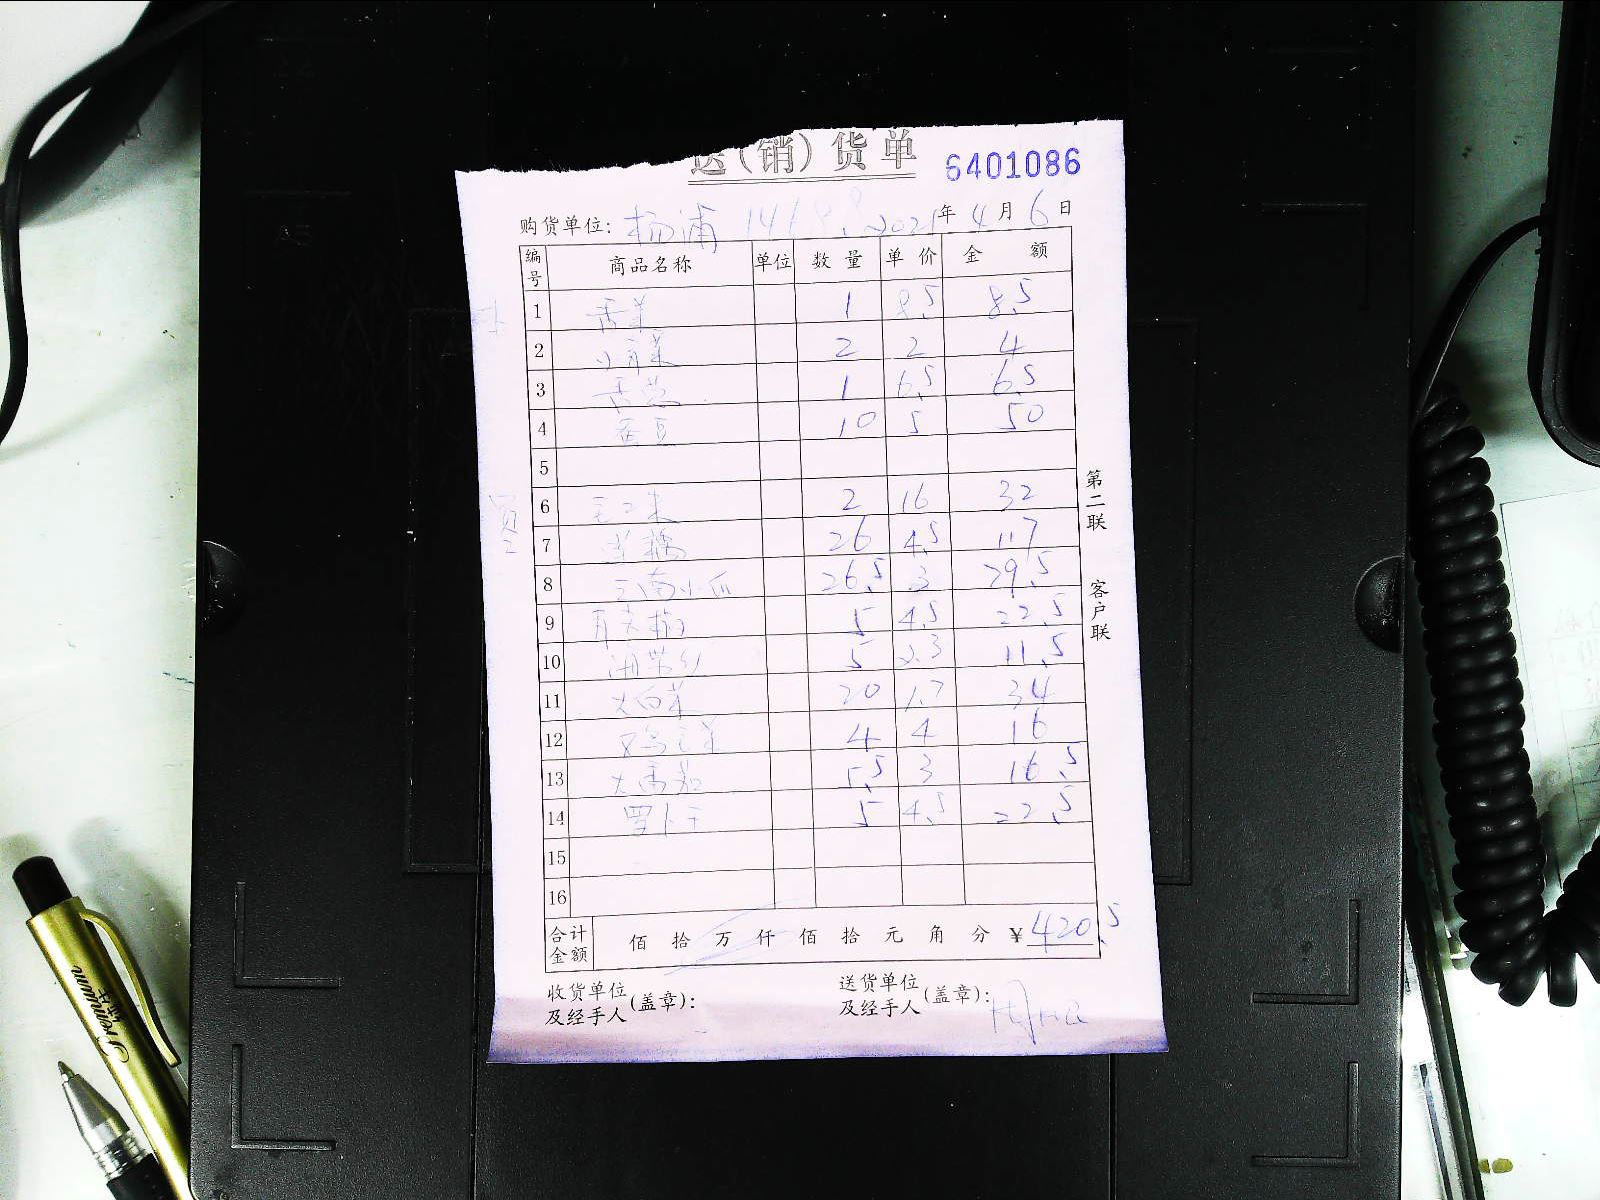 送(销)货单 6401086
购货单位: 杨浦 2021年4月6日
编号 商品名称 单位 数量 单价 金额
1 香菜 1 8.5 8.5
2 小青菜 2 2 4
3 香葱 1 6.5 6.5
4 蚕豆 10 5 50
5
6 玉米 2 16 32
7 26 4.5 117
8 云南小瓜 26.5 3 79.5
9 5 4.5 22.5
10 海带丝 5 2.3 11.5
11 大白菜 20 1.7 34
12 鸡毛菜 4 4 16
13 大番茄 5.5 3 16.5
14 罗卜干 5 4.5 22.5
15
16
合计金额 佰拾万仟佰拾元角分 ¥420.5
收货单位及经手人(盖章): 送货单位及经手人(盖章):
第二联 客户联
Premium